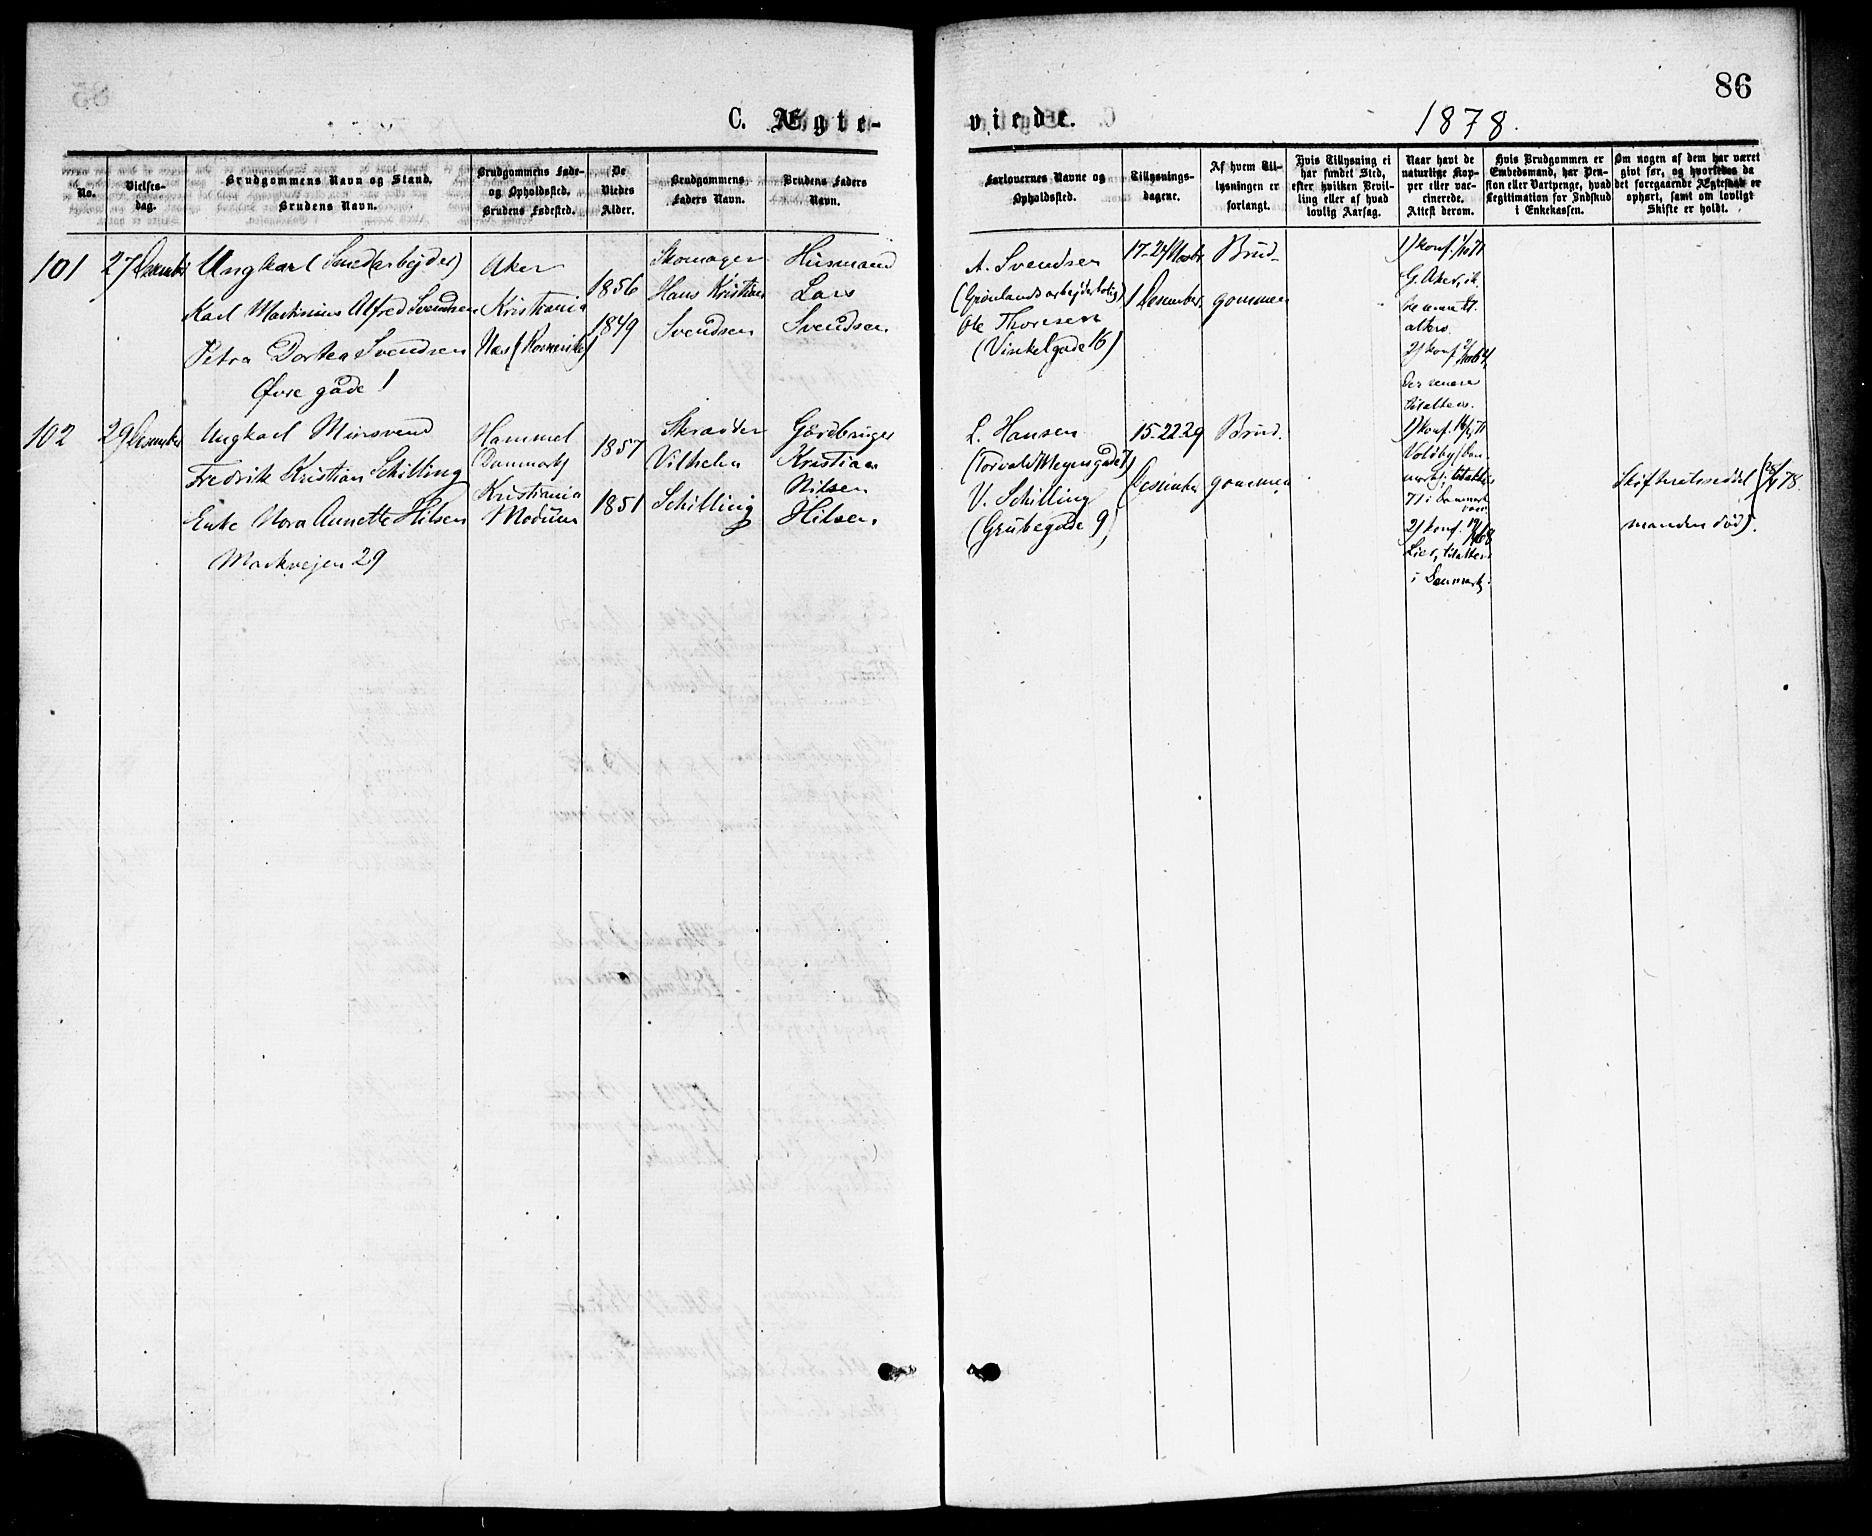 86
C. Ægte-
viede.
1878.
No.
Vielses-
dag.
Brudgommens Navn og Stand.
Brudens Navn.
Brudgommens Føde-
og Opholdssted.
Brudens Fødested.
De
Viedes
Alder.
Brudgommens
Faders Navn.
Brudens Faders
Navn.
Forlovernes Navne og
Opholdssted.
Tillysnings-
dagene.
Af hvem Til-
lysningen er
forlangt.
Hvis Tillysning ei
har fundet Sted,
efter hvilken Bevil-
ling eller af hvad
lovlig Aarsag.
Naar havt de
naturlige Kop-
per eller vac-
cinerede.
Attest derom.
Hvis Brudgommen er
Embedsmand, har Pen-
sion eller Vartpenge, hvad
Legitimation for Indskud
i Enkekassen.
Om nogen af dem har været
givt før, og hvorledes da
det foregaaende Ægteskab er
ophørt, samt om lovligt
Skifte er holdt.
101
27 December
Ungkarl
Karl Martinius Alfred Svendsen
Petra Dortea Svendsen
Øvre gade 1
Aker
Kristiania
Næs (Romerike)
1856
1849
Skomager
Hans Kristian
Svendsen
Husmand
Lars
Svendsen
A. Svendsen
(Grønlands arbejderbolig)
Ole Thoresen
(Vinkelgade 16)
17-24 Novbr
1 Desember
Brud-
gommen
1) konf. 71
G. Aker, ik.
2) konf. 64
102
29 Desember
Ungkarl
Fredrik Kristian Schilling
Enke Nora Annette Nilsen
Markvejen 29
Hammel
Danmark
Kristiania
Modum
1857
1851
Skrædder
Vilhelm
Schilling
Gårdbruger
Kristian
Nilsen
Nilsen
L. Hansen
(Torvald Meyersgade 7)
V. Schilling
(Grubegade 9)
15-22-29
Desember
Brud-
gommen
1) konf. 71
Voldby, Dan-
mark, tilalters
71 i Danmark
2) konf. 19/4 68
Lier, tilalters
i Danmark.
Skifteretsseddel
78.
manden død).